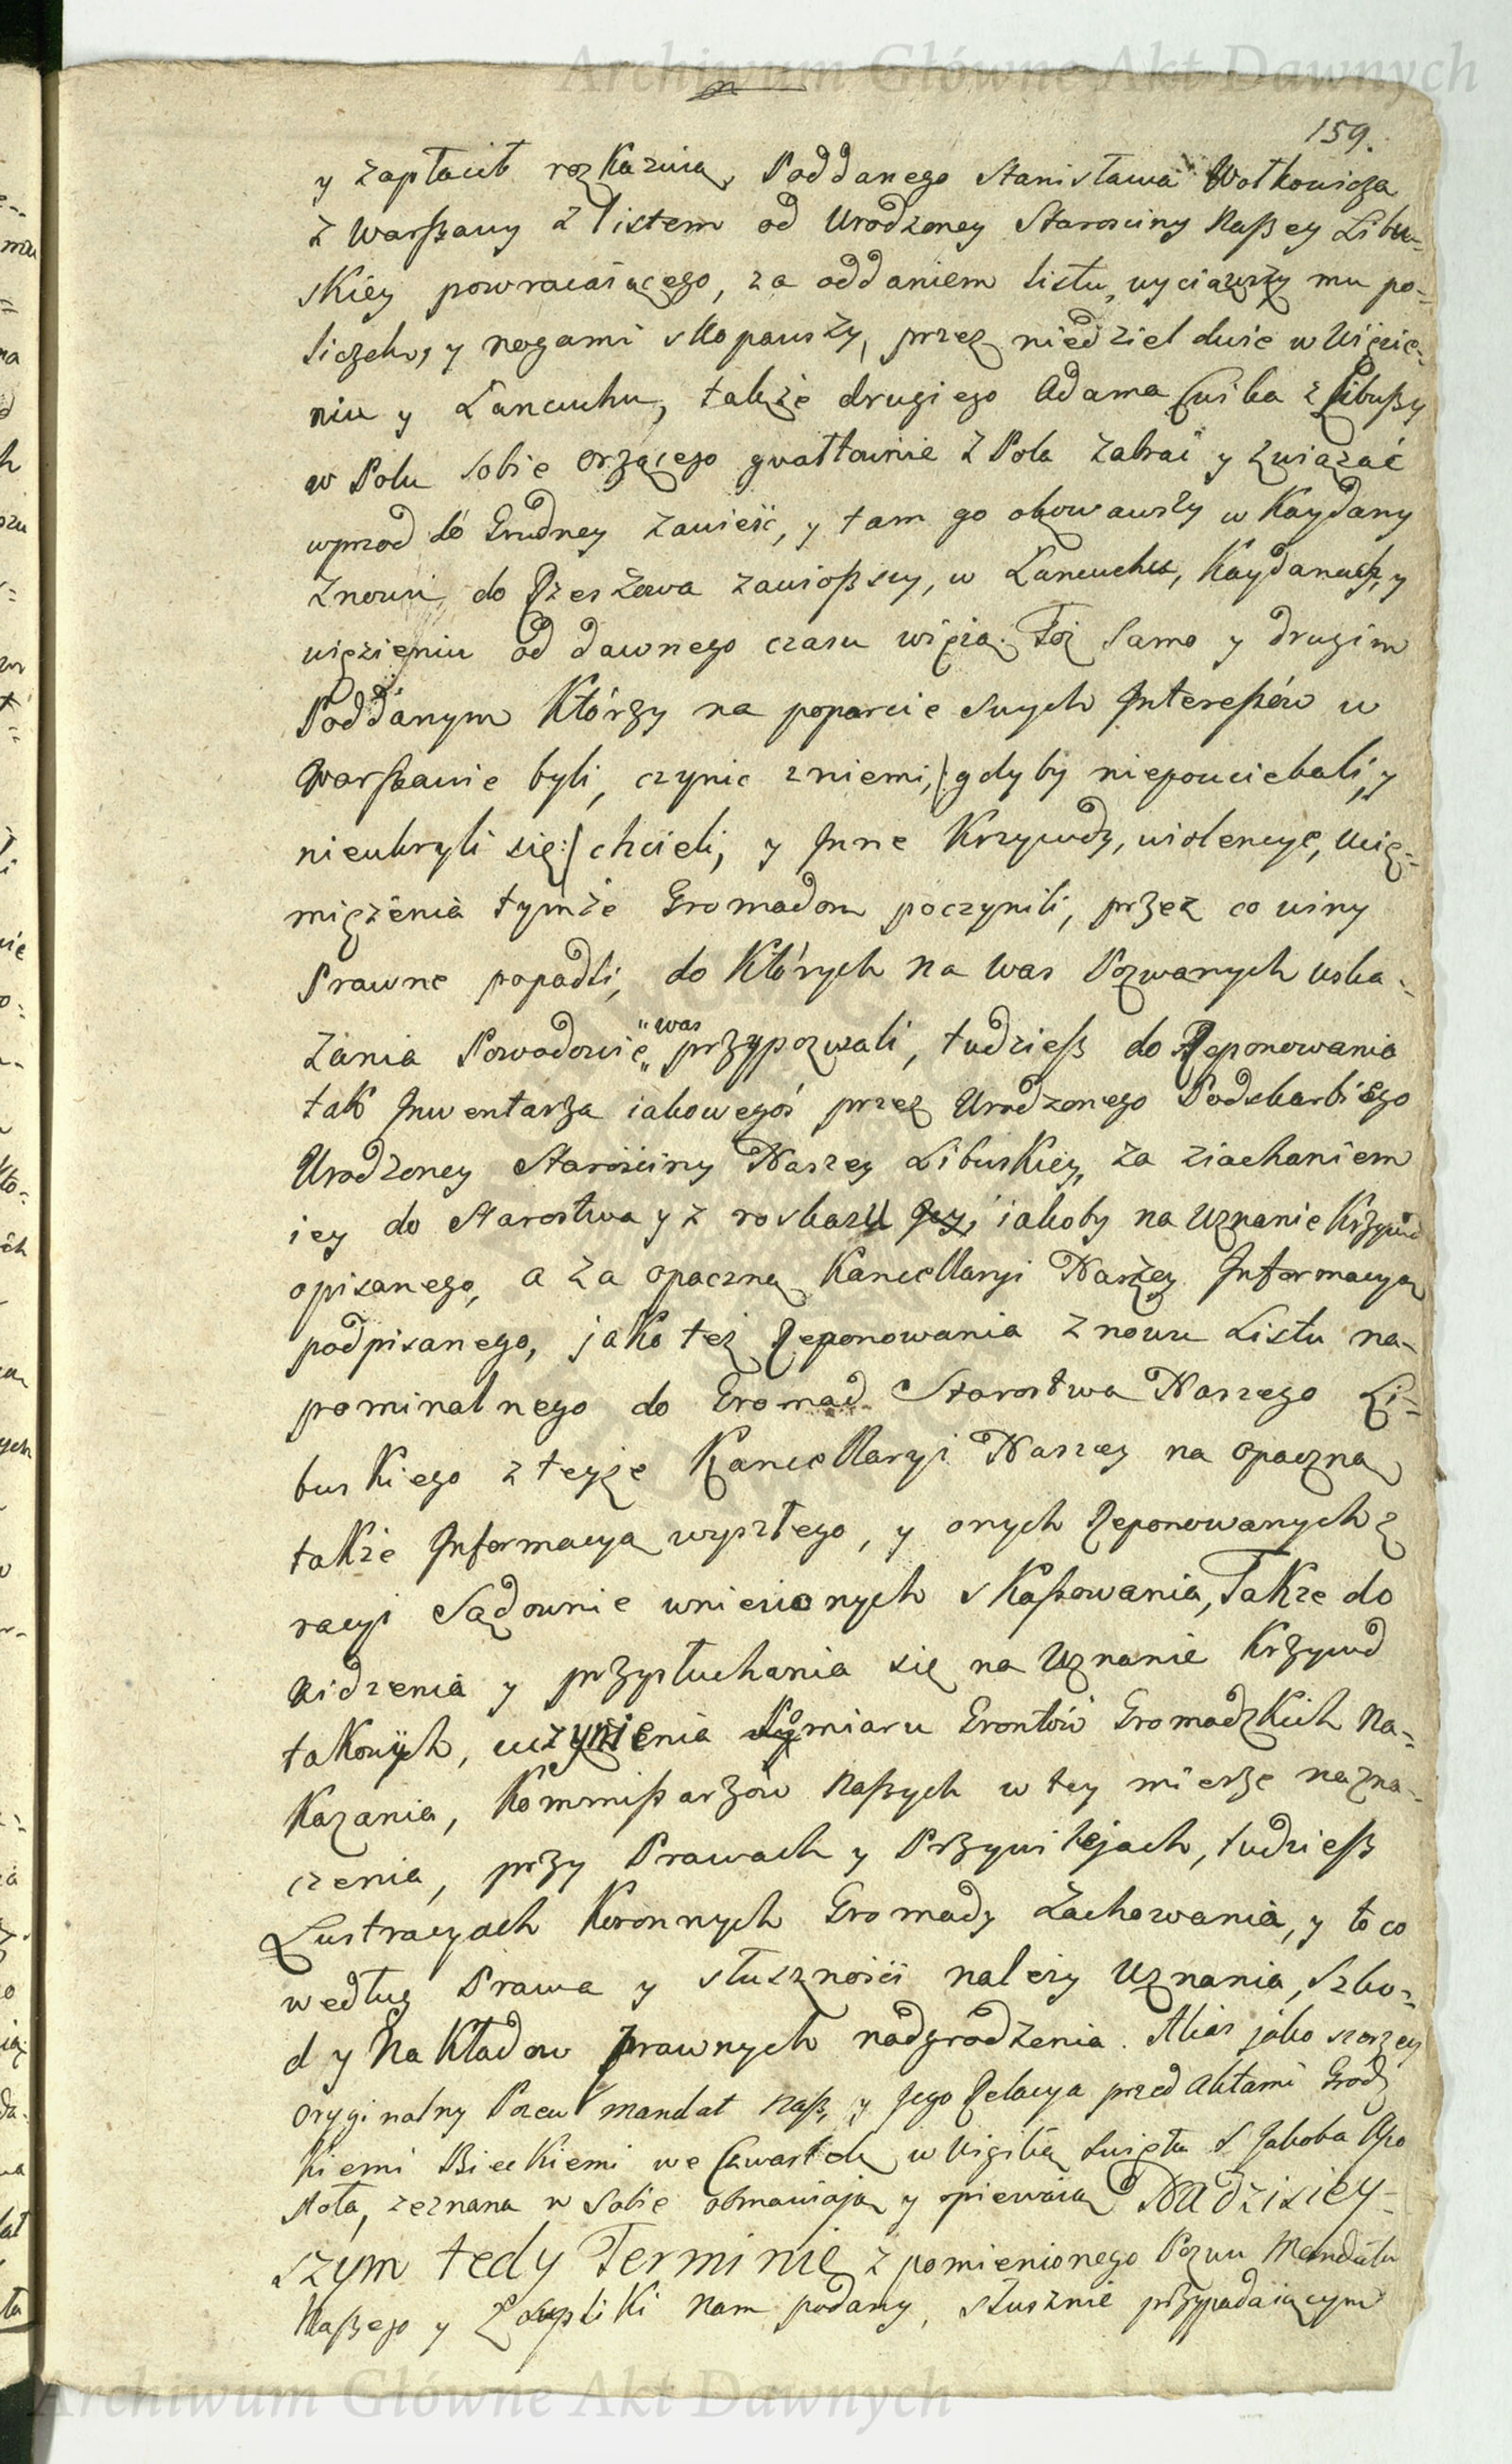 Archiwum Główne Akt Dawnych
159.
y zapłacić rozkazuią, Poddanego Stanisława Wołkowicza
z Warßawy z listem od Urodzoney Starościny Naßey Libu-
skiey powracaiącego, za oddaniem listu, wyciąwszy mu po-
liczek, y nogami skopawszy, przez niedziel dwie w Więzie-
niu y Łancuchu, także drugiego Adama Cwika z Libußy
w Polu sobie orzącego gwałtownie z Pola zabrać y związać
wprzod do Grudney zawieść, y tam go okowawszy w Kaydany
znowu do Rzeszowa zawiozßzy, w Łancuchu, Kaydanach, y
więzieniu od dawnego czasu więżą. Toż samo y drugim
Poddanym Którzy na poparcie swych Intereßów w
Warßawie byli, czynic z niemi, /: gdyby niepouciekali, y
nieukryli się :/ chcieli, y Inne Krzywdy, wiolencye, Ucię-
miężenia tymże Gromadom poczynili, przez co winy
Prawne popadli, do Których na was Pozwanych wska-
zania Powodowie "was" przypozwali, tudzieß do Reponowania
tak Inwentarza iakowegoś przez Urodzonego Podskarbiego
Urodzoney Starościny Naszey Libuskiey, za ziachaniem
iey do Starostwa y z roskazu Jey, iakoby na Uznanie Krzywd
opisanego, a za opaczną Kancellaryi Naszey Informacyą
podpisanego, jako też Reponowania znowu Listu na-
pominalnego do Gromad Starostwa Naszego Li-
buskiego z teyże Kancellaryi Naszey na opaczną
także Informacyą wyszłego, y onych Reponowanych z
racyi Sądownie wniesionych skaßowania, Także do
widzenia y przysłuchania się na Uznanie Krzywd
takowych, uczynienia Pomiaru Grontów Gromadzkich Na-
kazania, Kommißarzów Naßych w tey mierze nazna-
czenia, przy Prawach y Przywilejach, tudzieß
Lustracyach Koronnych Gromady Zachowania, y to co
według Prawa y słuszności należy Uznania, Szko-
d y Nakładow prawnych nadgrodzenia. Alias jako szerzey
oryginalny Pozew mandat Naß, y Jego Relacya przed Aktami Grodz
Kiemi Bieckiemi we Czwartek w Wigilią Swięta S Jakoba Apo
stoła, zeznana w sobie obmawiają y opiewaią Na Dzisiey-
szym tedy Terminie z pomienionego Pozwu Mandatu
Naßego y Suppliki Nam podany, słusznie przypadaiącym
Archiwum Główne Akt Dawnych